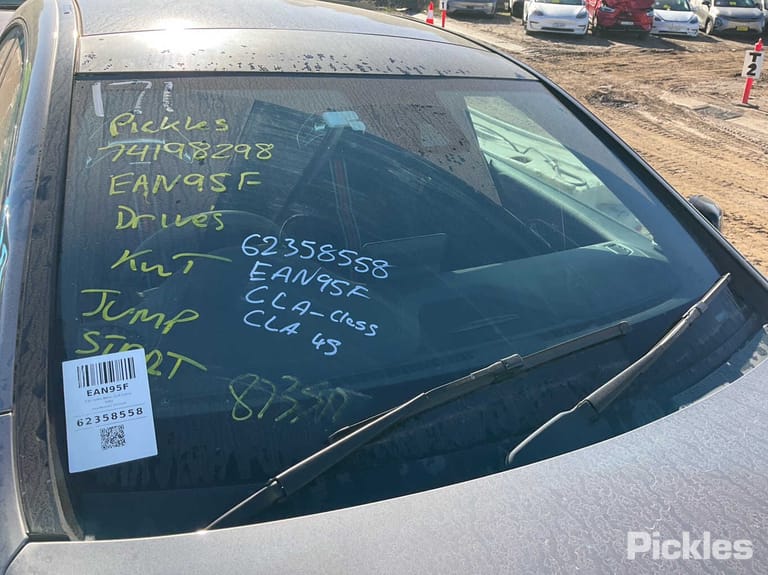 17
Pickles
74198298
EAN95F
Drive's
KWT
JUMP
START
62358558
EAN95F
CLA-Class
CLA 45
EAN95F
62358558
T
2
Pickles